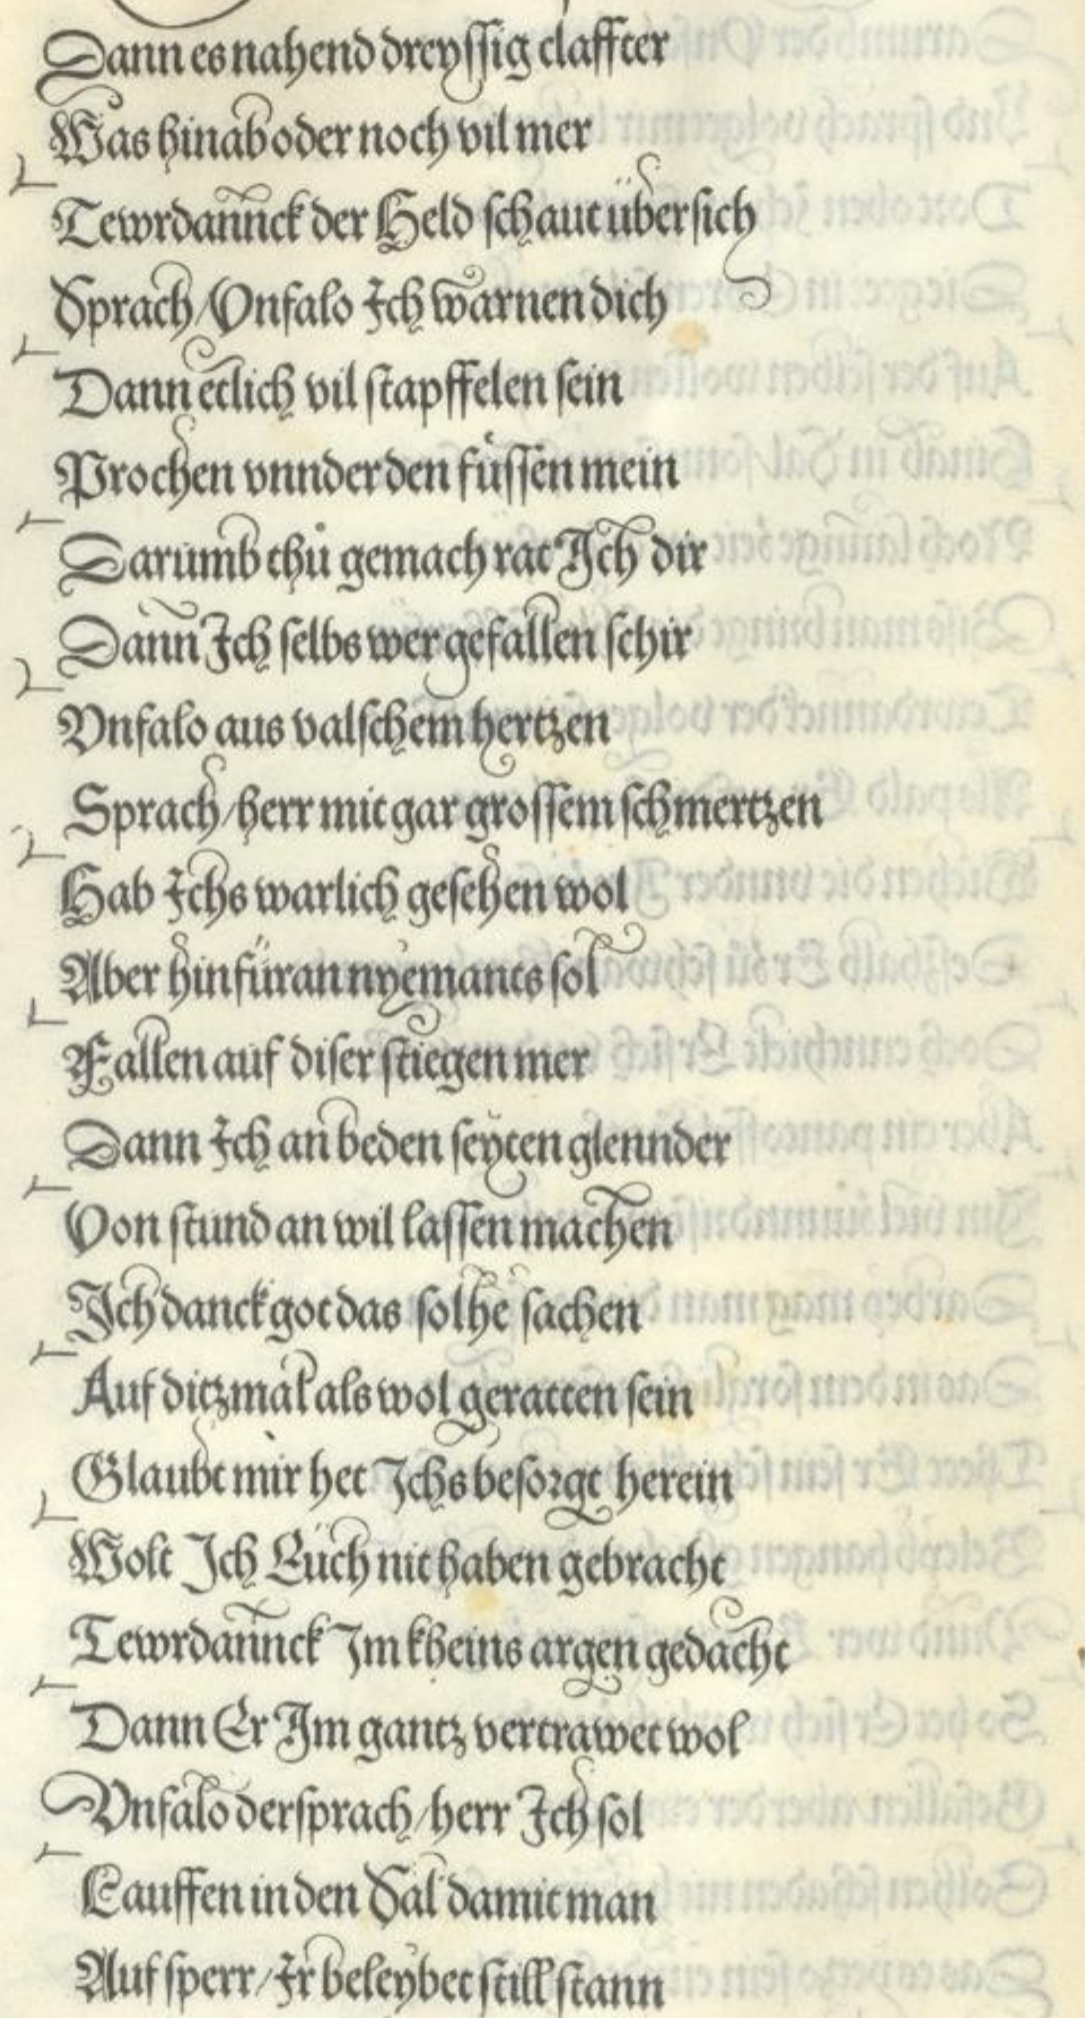 Dann es nahend dreyſſig claffter
Was hinab oder noch vil mer
Tewrdannck der Held ſchaut über ſich
Sprach / Vnfalo Ich warnen dich
Dann etlich vil ſtapffelen ſein
Prochen vnnder den füſſen mein
Darumb thů gemach rat Ich dir
Dann Ich ſelbs wer gefallen ſchir
Vnfalo aus valſchem hertzen
Sprach / herr mit gar groſſem ſchmertzen
Hab Ichs warlich geſehen wol
Aber hinfüran nyemants ſol
Fallen auf diſer ſtiegen mer
Dann Ich an beden ſeyten glennder
Von ſtund an wil laſſen machen
Ich danck got das ſolhe ſachen
Auf ditzmal als wol geratten ſein
Glaubt mir het Ichs beſorgt herein
Wolt Ich Euch nit haben gebracht
Tewrdannck Im kheins argen gedacht
Dann Er Im gantz vertrawet wol
Vnfalo der ſprach / herr Ich ſol
Lauffen in den Sal damit man
Auf ſperr / Ir beleybet ſtill ſtann